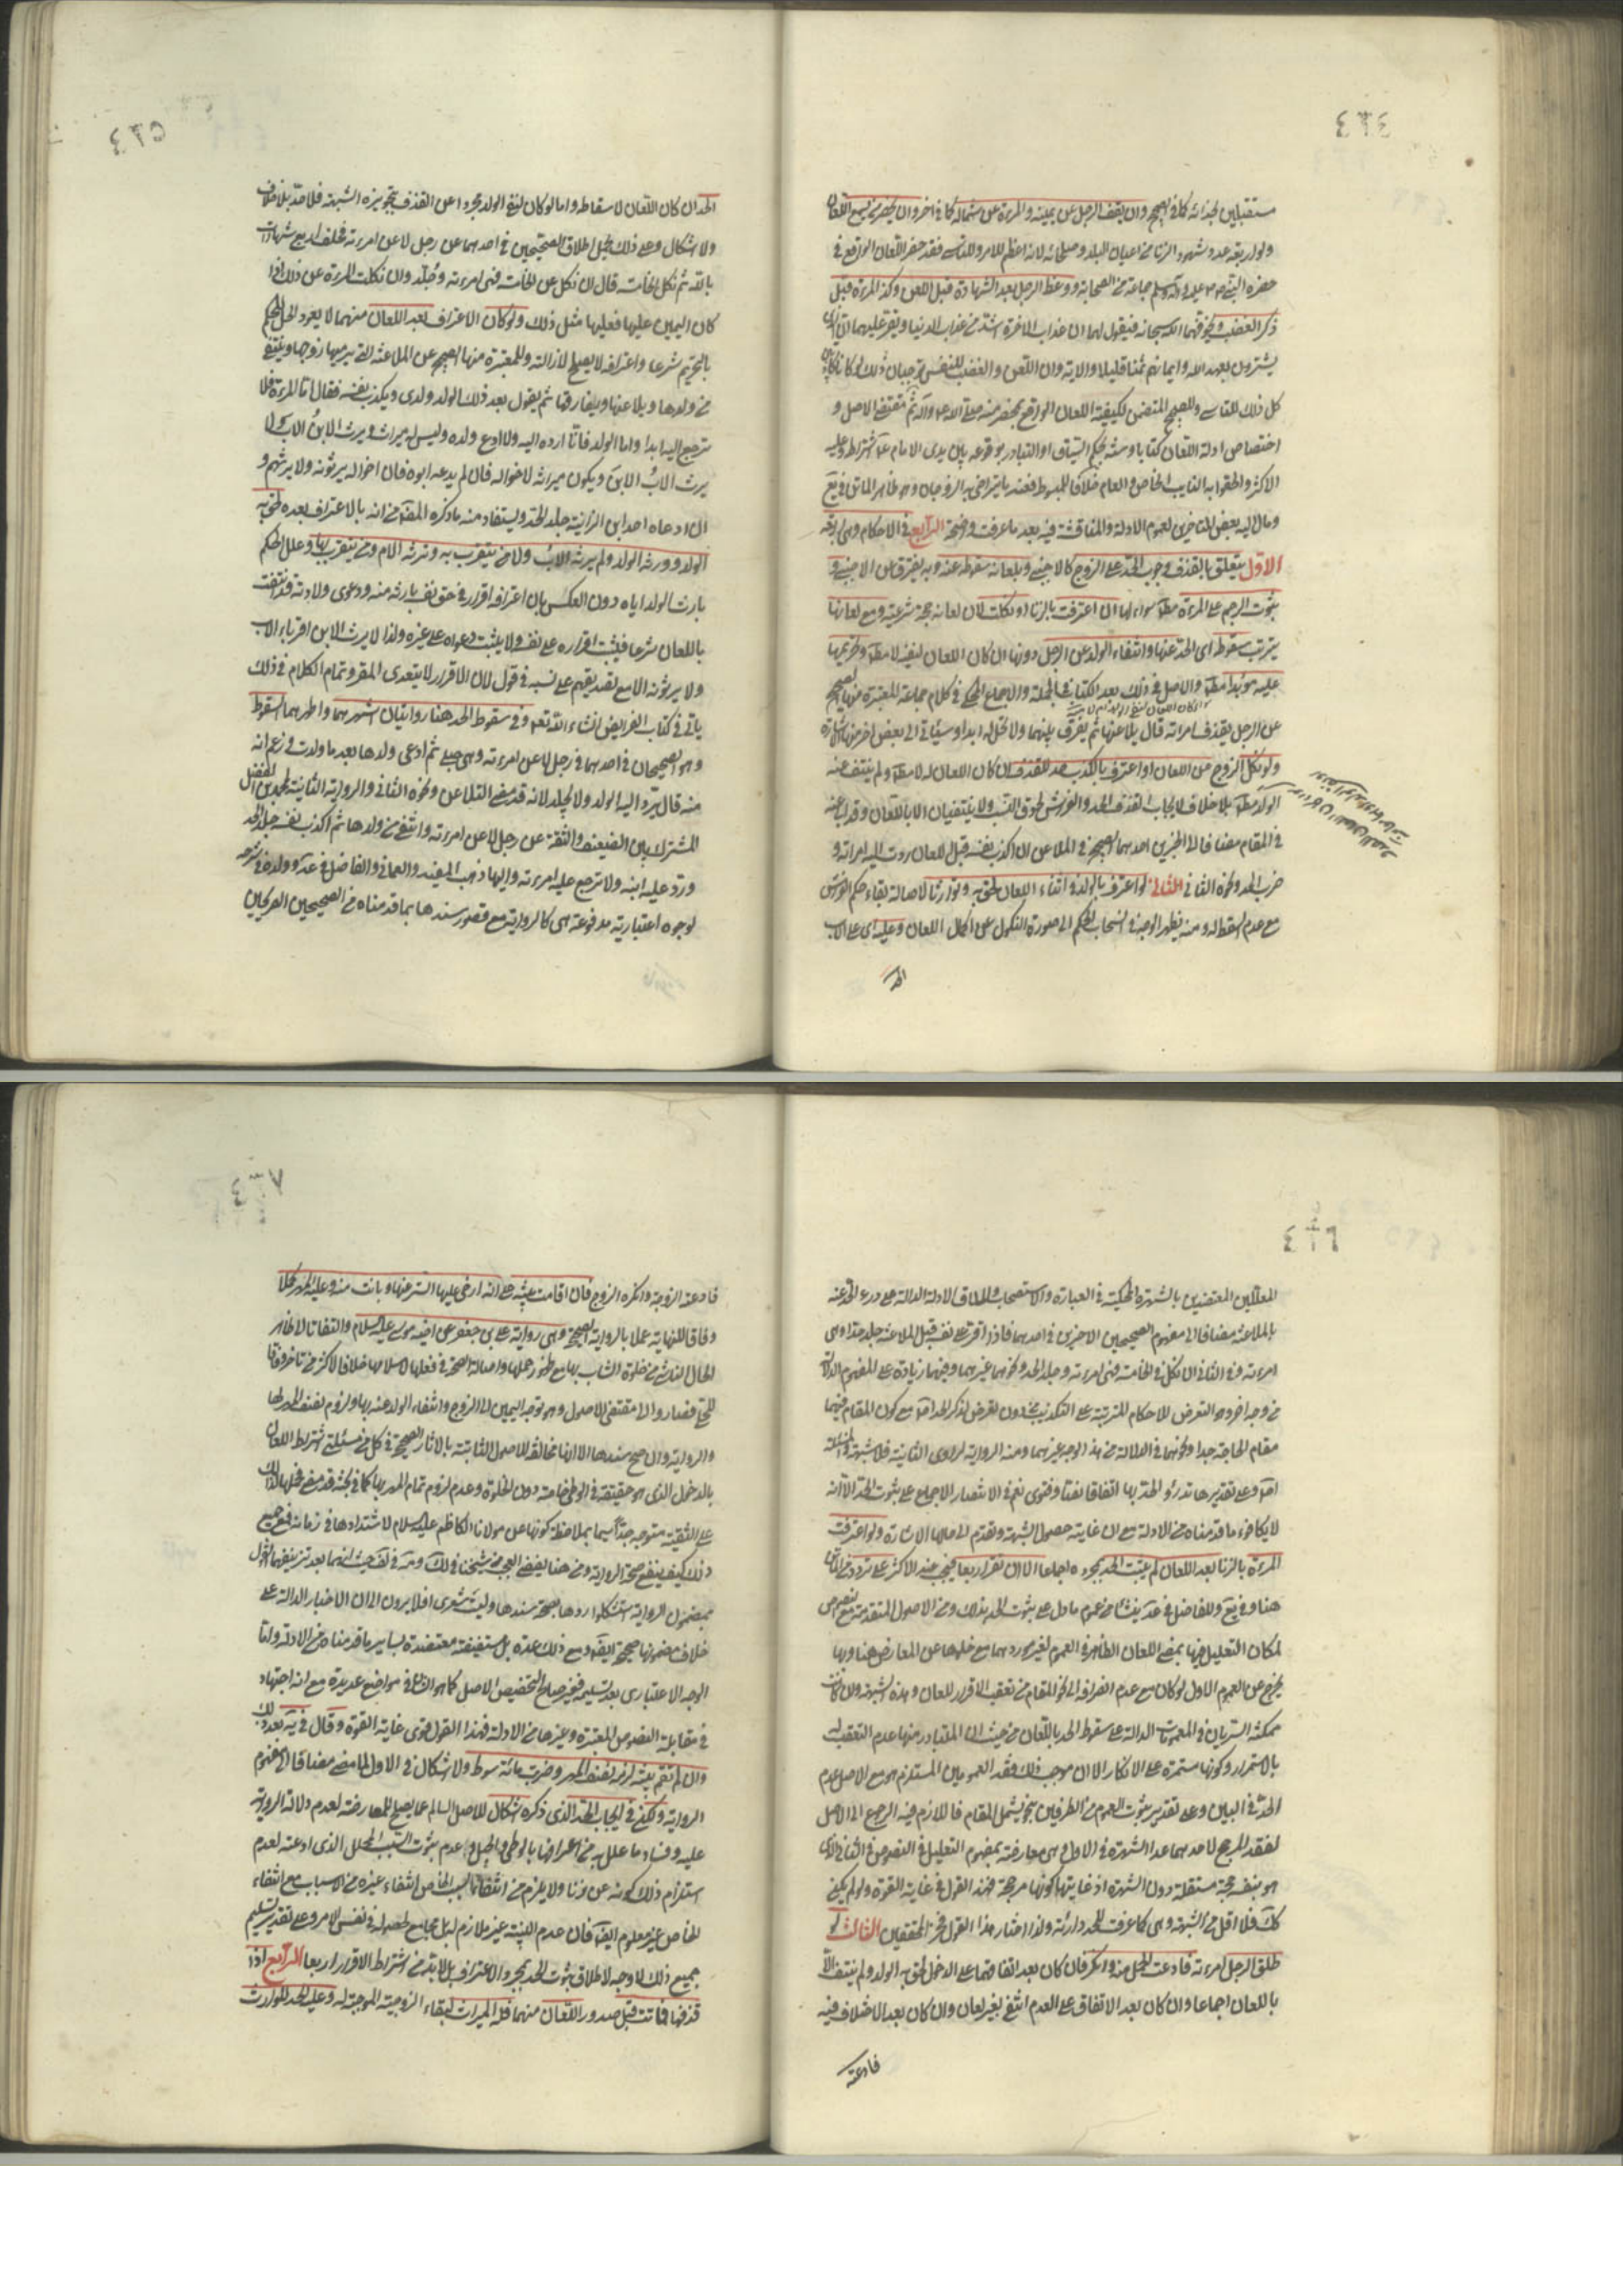 مستقبلين لحد انه كما في الصحيح وان يقف الرجل عن يمينه والمرءة عن شماله كما في اخر وان يحضر من يسمع اللعان
ولو اربعة عدد شهود الزنا من اعيان البلد وصلحائه لانه اعظم للامر وللتاسي فقد حضر اللعان الواقع في
حضرة النبي صلى الله عليه وآله وسلم جماعة من الصحابة ووعظ الرجل بعد الشهادة قبل اللعن وكذ المرءة قبل
ذكر الغضب وتخوفهما الله سبحانه فيقول لهما ان عذاب الاخرة اشد من عذاب الدنيا ويقرء عليهما ان الذين
يشترون بعهد الله وايمانهم ثمنا قليلا والاية وان اللعن والغضب للنفس موجبان ذلك لو كانا كاذبين
كل ذلك للتاسي وللصحيح المتضمن لكيفية اللعان الواقع بمحضر منه صلى الله عليه وآله ثم مقتضى الاصل و
اختصاص ادلة اللعان كتابا وسنة بحكم السياق او التبادر بوقوعه بين يدي الامام ع اشتراطه وعليه
الاكثر والحقوا به النايب الخاص والعام خلافا للمبسوط فعند بايتراضى به الزوجان وهو ظاهر الماتن في يع
ومال اليه بعض المتاخرين لعموم الادلة والمناقشة فيه بعد ما عرفت واضحة الرابع في الاحكام وهي اربعة
الاول يتعلق بالقذف وجوب الحد على الزوج كالاجنبي وبلعانه سقوطه عنه وبه يفترق من الاجنبي و
ثبوت الرجم على المرءة مطا سواء لها ان اعترفت بالزنا او نكلت لان لعانه حجة شرعية ومع لعانها
يترتب سقوطه اي الحد عنها وانتفاء الولد عن الرجل دونها ان كان اللعان لنفيه لا مطا وتحريمها
عليه مؤبدا مطا والاصل في ذلك بعد الكتاب في الجملة والاجماع المحكي في كلام جماعة المعتبرة منها الصحيح
عن الرجل يقذف امراته قال يلاعنها ثم يفرق بينهما ولا تحل له ابدا وسياتي الى بعض اخر منها الاشارة
ولو نكل الزوج عن اللعان او اعترف بالكذب حد للقذف ان كان اللعان له لا مطا ولم ينتف عنه
الولد مطا بلا خلاف لايجاب القذف الحد والفراش لحوق النسب ولا ينتفيان الا باللعان وقد
في المقام مضافا الى الخبرين احدهما الصحيح في الملاعن ان اكذب نفسه قبل اللعان ردت اليه امراته و
ضرب الحد ونحوه الثاني الثاني لو اعترف بالولد في اثناء اللعان لحق به وتوارثا لاصالة بقاء حكم الفراش
مع عدم المسقط له ومنه يظهر الوجه في انسحاب الحكم الى صورة النكول عن اكمال اللعان وعليه اي على الاب
الحد
الحد ان كان اللعان لاسقاطه واما لو كان لنفي الولد مجردا عن القذف بتجويزه الشبهة فلا حد بلا خلاف
ولا اشكال وعلى ذلك يحمل اطلاق الصحيحين في احدهما عن رجل لاعن امرءته فحلف اربع شهادات
بالله ثم نكل في الخامسة قال ان نكل عن الخامسة فهي امرءته وجلد وان نكلت المرءة عن ذلك اذا
كان اليمين عليها فعليها مثل ذلك ولو كان الاعتراف بعد اللعان منهما لا يعود الحل للحكم
بالتحريم شرعا واعترافه لا يصلح لازالته وللمعتبرة منها الصحيح عن الملاعنة التي يرميها زوجها وينتفي
من ولدها ويلاعنها ويفارقها ثم يقول بعد ذلك الولد ولدي ويكذب نفسه فقال اما المرءة فلا
ترجع اليه ابدا واما الولد فانا ارده اليه ولا ادع ولده وليس له ميراث ويرث الابن الاب ولا
يرث الاب الابن ويكون ميراثه لاخواله فان لم يدعه ابوه فان اخواله يرثونه ولا يرثهم و
ان دعاه احد ابن الزانية جلد الحد ويستفاد منه ما ذكره المصنف من انه بالاعتراف بعده لحق به
الولد وورثه الولد ولم يرثه الاب ولا من يتقرب به وترثه الام ومن يتقرب بها وعلل الحكم
بارث الولد اياه دون العكس بان اعترافه اقرار في حق نفسه بارثه منه ودعوى ولادته قد انتفت
باللعان شرعا فيثبت اقراره على نفسه ولا يثبت دعواه على غيره ولذا لا يرث الابن اقرباء الاب
ولا يرثونه الا مع تصديقهم على نسبه في قول لان الاقرار لا يتعدى المقر وتمام الكلام في ذلك
ياتي في كتاب الفرايض انشاء الله تعم وفي سقوط الحد هنا روايتان اشهرهما واظهرهما السقوط
وهو الصحيحان في احدهما في رجل لاعن امرءته وهي حبلى ثم ادعى ولدها بعد ما ولدت وزعم انه
منه قال يرد اليه الولد ولا يجلد لانه قد مضى التلاعن ونحوه الثاني والرواية الثانية لمحمد بن الفضيل
المشترك بين الضعيف والثقة عن رجل لاعن امرءته وانتفى من ولدها ثم اكذب نفسه جلد الحد
ورد عليه ابنه ولا ترجع عليه امرءته واليها ذهب المفيد والعماني والفاضل في عد وولده في شرحه
لوجوه اعتبارية مدفوعة هي كالرواية مع قصور سندها بما قدمناه من الصحيحين الصريحين
المعللين المعتضدين بالشهرة المحكية في العبارة والاستصحاب واطلاق الادلة الدالة على درء الحد عنه
بالملاعنة مضافا الى مفهوم الصحيحين الاخيرين في احدهما فاذا اقر على نفسه قبل الملاعنة جلد حدا وهي
امرءته وفي الثاني ان نكل في الخامسة فهي امرءته وجلد الحد ونحوهما غيرهما وفيهما زيادة على المفهوم الدلالة
من وجه اخر وهو التعرض للاحكام المترتبة على التكذيب من دون تعرض لذكر الحد اصلا مع كون المقام فيهما
مقام الحاجة جدا ونحوهما في الدلالة من هذا الوجه غيرهما ومنه الرواية لراوي الثانية فلا شبهة في المسئلة
اصلا وعلى تقديرها تدرؤ الحد بها اتفاقا نصا وفتوى نعم في الانتصار الاجماع على ثبوت الحد الا انه
لا يكافؤ ما قدمناه من الادلة مع ان غايته حصول الشبهة وتقدم الى حالها الاشارة ولو اعترفت
المرءة بالزنا بعد اللعان لم يثبت الحد بمجرده اجماعا الا ان تقر اربعا فيجب عند الاكثر على تردد من الماتن
هنا وفي يع وللفاضل في عد ينشا من عموم ما دل على ثبوت الحد بذلك ومن الاصول المتقدمة مع نصوص
لمكان التعليل فيها بمضي اللعان الظاهر في العموم لغير موردهما مع خلوها عن المعارض هنا وبها
يخرج عن العموم الاول لو كان مع عدم انصرافه الى نحو المقام من تعقب الاقرار للعان وهذه الشبهة وان كانت
ممكنة السريان في العمومات الدالة على سقوط الحد باللعان من حيث ان المتبادر منها عدم التعقب له
بالاستمرار وكونها مستمرة على الانكار الا ان موجب ذلك فقد العمومين المستلزم هو مع الاصل عدم
الحد في البين وعلى تقدير ثبوت العموم من الطرفين بنحو يشمل المقام فاللازم فيه الرجوع الى الاصل
لفقد المرجح لاحدهما عدا الشهرة في الاول وهي معارضة بمفهوم التعليل في النصوص في الثاني الذي
هو بنفسه حجة مستقلة دون الشهرة اذ غايتها كونها مرجحة فهذا القول في غاية القوة ولو لم يكن
كك فلا اقل من الشبهة وهي كما عرفت للحد دارئة ولذا اختار هذا القول فخر المحققين الثالث لو
طلق الرجل امرءته فادعت الحمل منه وانكر فان كان بعد اتفاقهما على الدخول لحق به الولد ولم ينتف الا
باللعان اجماعا وان كان بعد الاتفاق على العدم انتفى بغير لعان وان كان بعد الاختلاف فيه
فادعته
فادعته الزوجة وانكره الزوج فان اقامت بينة على انه ارخى عليها الستر لاعنها وبانت منه وعليه المهر كملا
وفاقا للنهاية عملا بالرواية الصحيحة وهي رواية علي بن جعفر عن اخيه موسى عليه السلام والتفاتا لظاهر
الحال الناشئ من خلوة الشاب بها مع ظهور حملها واصالة الصحة في فعلها لاسلامها خلافا لاكثر من تاخر وفاقا
للحلي فصاروا الى مقتضى الاصول وهو توجه اليمين الى الزوج وانتفاء الولد عنه بها ولزوم نصف المهر لها
والرواية وان صح سندها الا انها مخالفة للاصول الثابتة بالاثار الصحيحة في كل من مسئلتي اشتراط اللعان
بالدخول الذي هو حقيقة في الوطي خاصة دون الخلوة وعدم لزوم تمام المهر بها كما في بحثه قد مضى فحملها
على التقية متوجه جدا سيما بملاحظة كونها عن مولانا الكاظم عليه السلام لاشتدادها في زمانه فمع جميع
ذلك كيف ينفع صحة الرواية ومن هنا ينقضي العجب من شيخنا في لك
بمضمون الرواية استشكلوا ردها بصحة سندها وليت شعري افلا يرون الى ان الاخبار الدالة على
خلاف مضمونها صحيحة ايضا ومع ذلك عدة بل مستفيضة معتضدة بساير ما قدمناه من الادلة واما
الوجه الاعتباري بعد تسليمه فغير صالح لتخصيص الاصل كما هو الشان في مواضع عديدة مع انه اجتهاد
في مقابلة النصوص المعتبرة وغيرها من الادلة فهذا القول قوي غاية القوة وقال في يه بعد ذلك
وان لم تقم بينة لزمه نصف المهر وضربت مائة سوط ولا اشكال في الاول لما مضى مضافا الى مفهوم
الرواية ولكن في ايجاب الحد الذي ذكره اشكال للاصل السالم عما يصلح للمعارضة لعدم دلالة الرواية
عليه وفساد ما علل به من اعترافها بالوطي والحبل وعدم ثبوت السبب المحلل الذي ادعته لعدم
استلزام ذلك كونه عن زنا ولا يلزم من انتفاء السبب الخاص انتفاء غيره من الاسباب مع انتفاء
الخاص غير معلوم ايضا فان عدم البينة غير ملازم له بل مجامع لحصوله في نفس الامر وعلى تقدير تسليم
جميع ذلك لا وجه لاطلاق ثبوت الحد بمجرد الاعتراف بل لا بد من اشتراط الاقرار اربعا الرابع اذا
قذفها فماتت قبل صدور اللعان منهما فله الميراث لبقاء الزوجية الموجبة له وعليه الحد للوارث